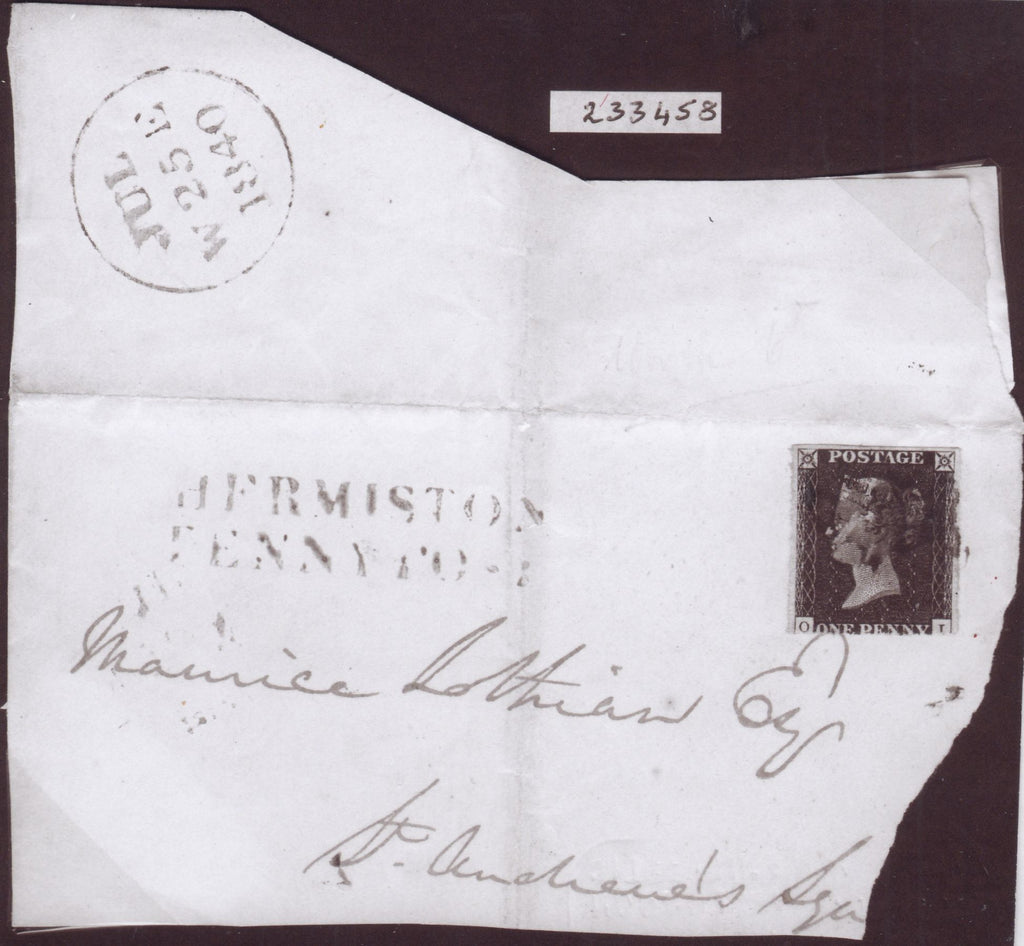 233458
JUL
W 25 E
1840
HERMISTON
PENNY POST
POSTAGE
O ONE PENNY I
Maurice Lothian Esq
St. Andrew's Squ